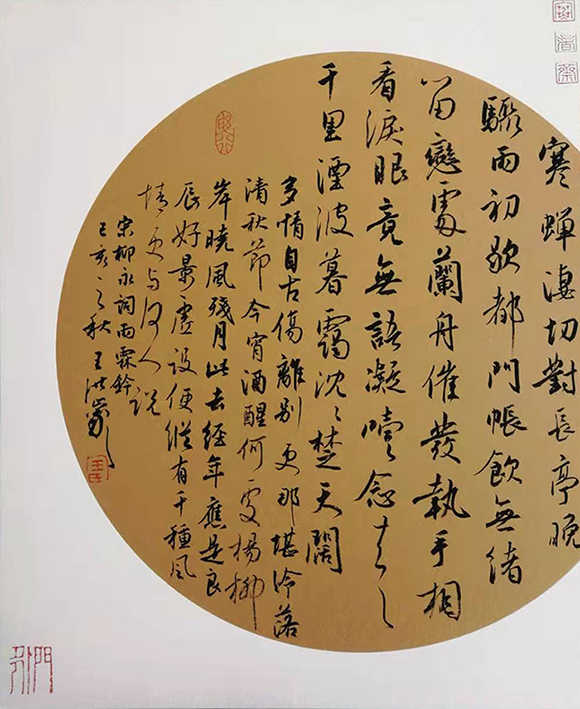 寒蟬淒切對長亭晚
驟雨初歇都門帳飲無緒
留戀處蘭舟催發執手相
看淚眼竟無語凝噎念去〻
千里湮波暮靄沈〻楚天闊
多情自古傷離別更那堪冷落
清秋節今宵酒醒何處楊柳
岸曉風殘月此去經年應是良
辰好景虛設便縱有千種風
情更與何人說
宋柳永詞雨霖鈴
己亥之秋王洪